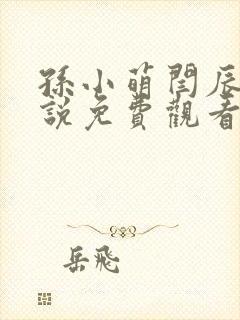 孫小萌閆辰
說免費觀看
岳飛